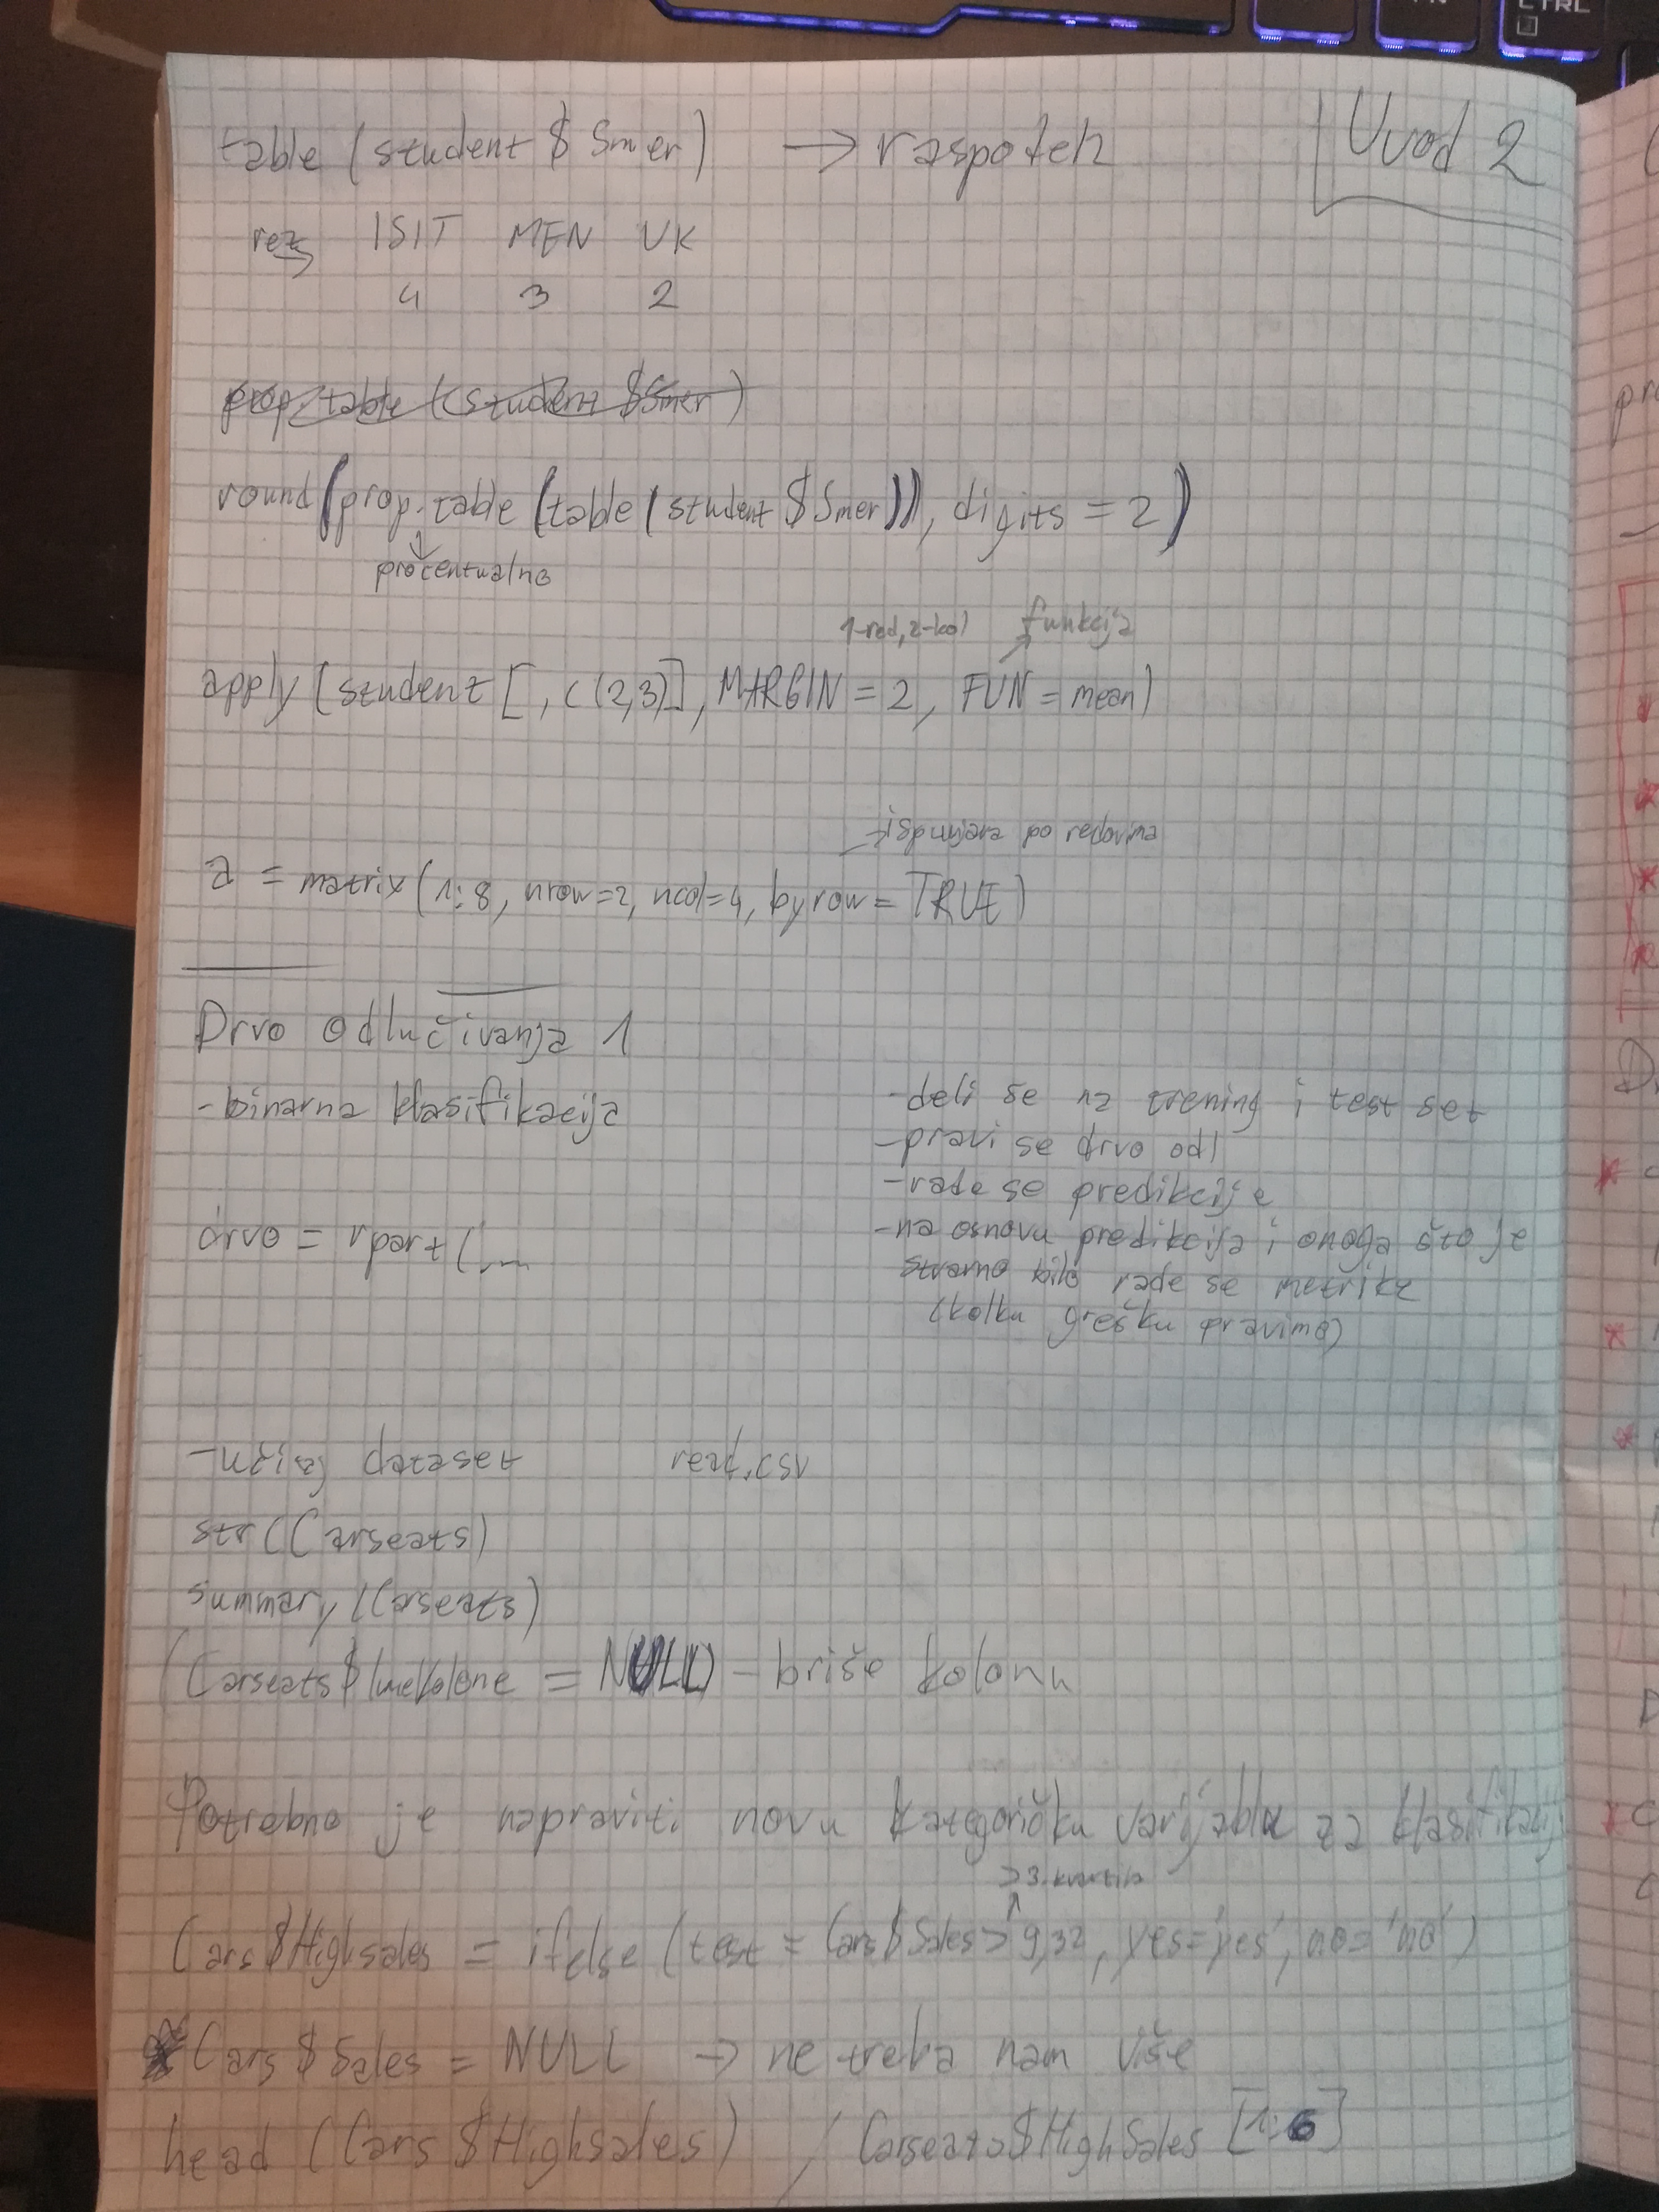 Uvod 2
table (student $ Smer) → raspodela
rez ISIT MEN UK
4 3 2
prop.table (student $Smer)
round(prop.table(table(student $Smer)), digits = 2)
↓
procentualno
1-red, 2-kol funkcija
apply (student [, c(2,3)], MARGIN = 2, FUN = mean)
→ ispunjava po redovima
a = matrix (1:8, nrow=2, ncol=4, byrow = TRUE)
Drvo odlučivanja 1
-binarna klasifikacija
-deli se na trening i test set
-pravi se drvo odl
-rade se predikcije
drvo = rpart (...
-na osnovu predikcija i onoga što je
stvarno bilo rade se metrike
(kolku grešku pravimo)
-učitaj dataset read.csv
str(Carseats)
summary (Carseats)
(Carseats$ImeKolone = NULL) - briše kolonu
Potrebno je napraviti novu kategoričku varijablu za klasifikacij
>3. kvartila
↑
Cars $Highsales = ifelse (test = Cars$Sales > 9,32, yes='yes', no='no')
Cars $ Sales = NULL → ne treba nam više
head (Cars $Highsales) / Carseats$HighSales [1:6]
CTRL